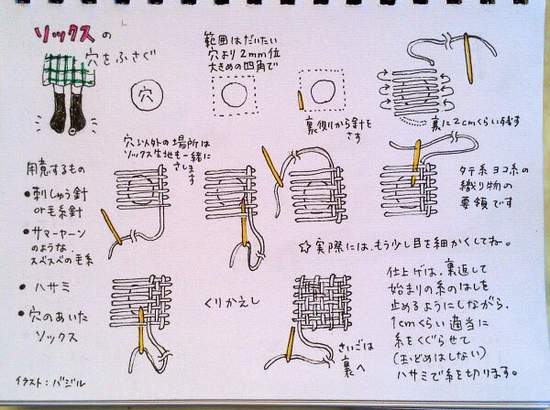 ソックスの
穴をふさぐ
穴
範囲はだいたい
穴より2mm位
大きめの四角で
裏側から針を
さす
裏に2cmくらい残す
穴以外の場所は
ソックス生地も一緒に
さします
タテ糸ヨコ糸の
織り物の
要領です
用意するもの
●刺しゅう針
or毛糸針
●サマーヤーン
のような
スベスベの毛糸
●ハサミ
●穴のあいた
ソックス
☆実際には、もう少し目を細かくしてね。
くりかえし
さいごは
裏へ
仕上げは、裏返して
始まりの糸のはしを
止めるようにしながら、
1cmくらい適当に
糸をくぐらせて
(玉どめはしない)
ハサミで糸を切ります。
イラスト:バジル